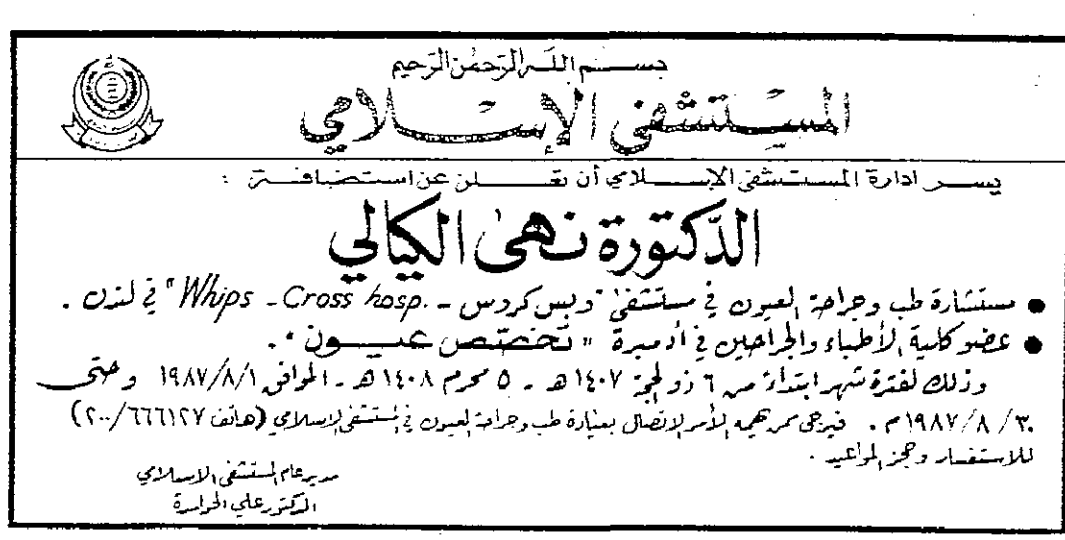 بسم الله الرحمن الرحيم
المستشفى الإسلامي
يسر ادارة المستشفى الاسلامي أن تعلن عن استضافة :
الدكتورة نهى الكيالي
● مستشارة طب وجراحة العيون في مستشفى "وبس كروس - Whips - Cross hosp." في لندن .
● عضو كلية الأطباء والجراحين في أدمبرة "تخصص عيون" .
وذلك لفترة شهر ابتداءً من ٦ ذو الحجة ١٤٠٧ هـ - ٥ محرم ١٤٠٨ هـ - الموافق ١٩٨٧/٨/١ وحتى
٣٠/٨/١٩٨٧ م . فيرجى ممن يهمه الأمر الاتصال بعيادة طب وجراحة العيون في المستشفى الاسلامي (هاتف ٦٦٦١٢٧/٢٠٠)
للاستفسار وحجز المواعيد .
مدير عام المستشفى الاسلامي
الدكتور علي الحوامدة